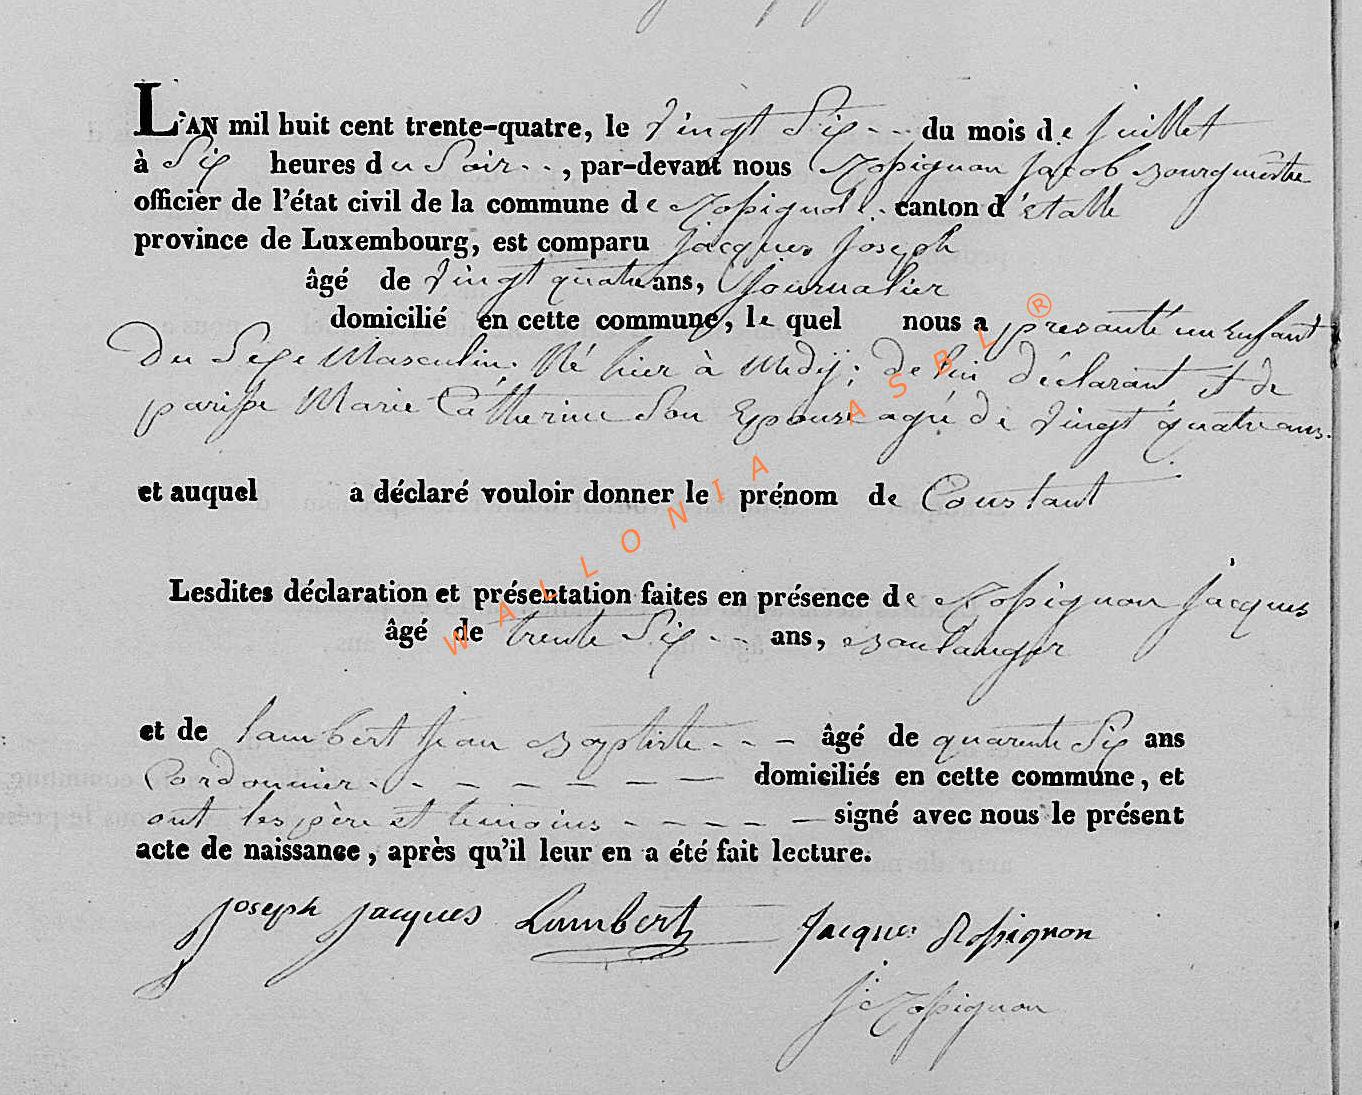 L'AN mil huit cent trente-quatre, le vingt Six du mois de juillet
à Six heures du Soir, par-devant nous Rossignon Jacob Bourgmestre
officier de l'état civil de la commune de Rossignol canton d'étalle
province de Luxembourg, est comparu jacques joseph
âgé de vingt quatre ans, journalier
domicilié en cette commune, le quel nous a presanté un Enfant
Du Sexe Masculin. Né hier à Midÿ; de lui déclarant et de
parisse Marie Catherine Son Epouse agé de vingt quatre ans.
et auquel a déclaré vouloir donner le prénom de Constant
Lesdites déclaration et présentation faites en présence de Rossignon jacques
âgé de trente Six ans, Boulanger
et de lambert jean Baptiste âgé de quarente Six ans
Cordonnier domiciliés en cette commune, et
ont les père et temoins signé avec nous le présent
acte de naissance, après qu'il leur en a été fait lecture.
joseph jacques Lambert jacques Rossignon
J Rossignon
WALLONIA ASBL ®